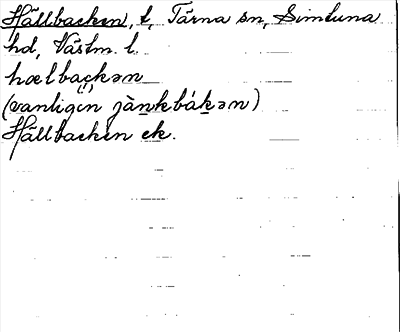 Hällbacken, t, Tärna sn, Simtuna
hd, Västm. l.
hælbac̣kən
(vanligen jàn̲kbák̲ən)
Hällbacken ek.